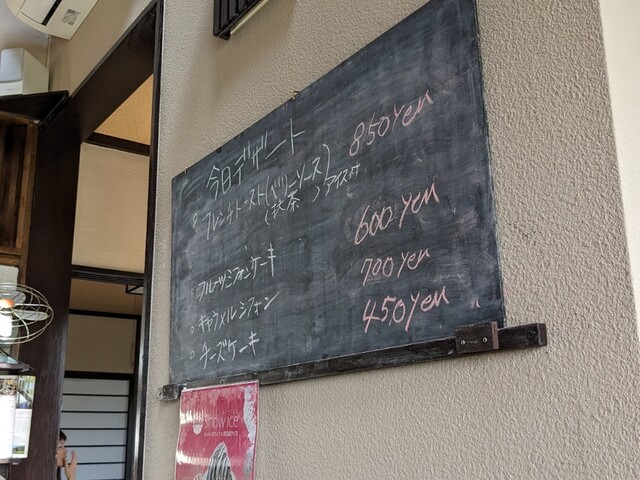 今日デザート
○ フレンチトースト(ベリーソース) 850yen
(抹茶)アイス付
○ フルーツシフォンケーキ 600yen
○ キャラメルシフォン 700yen
○ チーズケーキ 450yen
snow ice